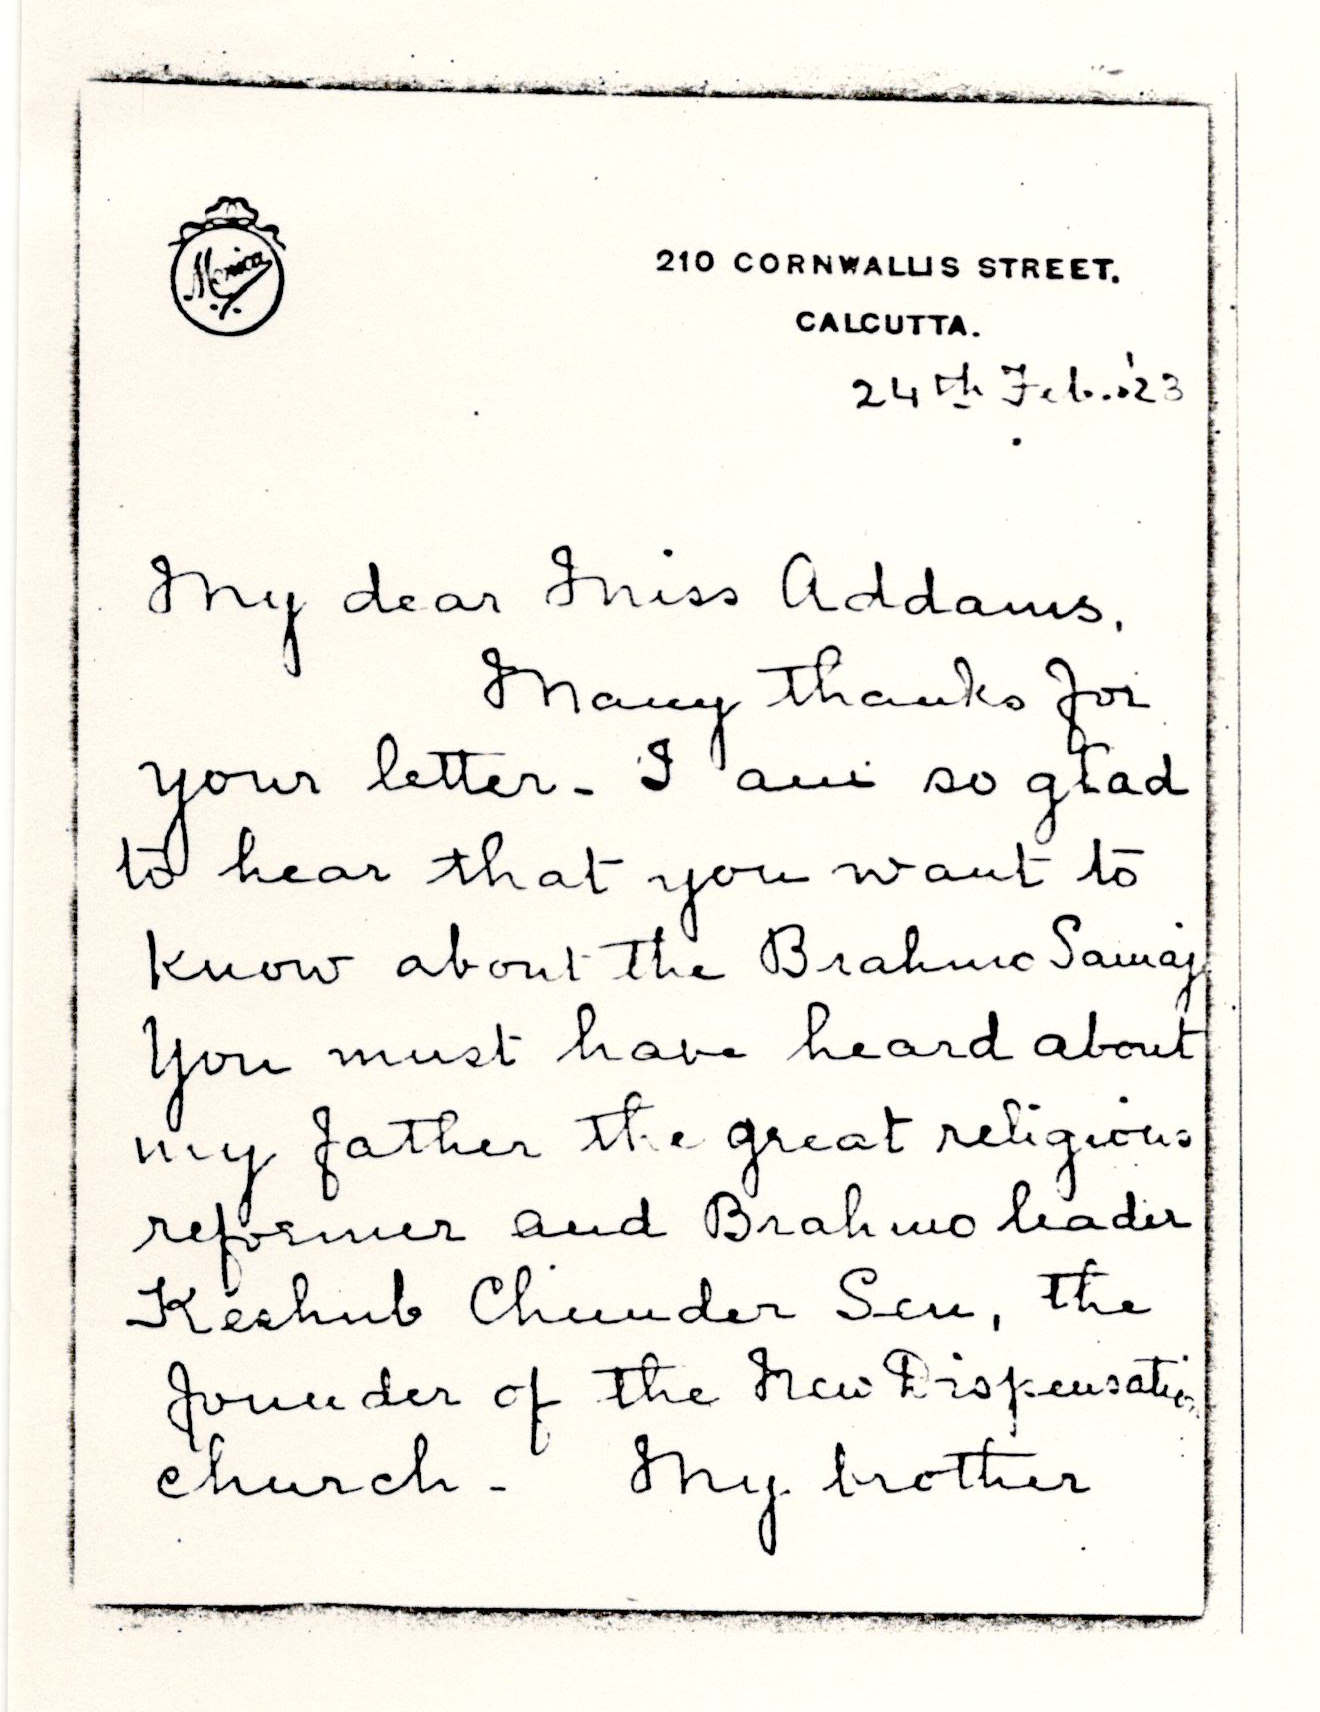 Monica
210 CORNWALLIS STREET.
CALCUTTA.
24th Feb. '23
My dear Miss Addams,
Many thanks for
your letter - I am so glad
to hear that you want to
know about the Brahmo Samaj
You must have heard about
my father the great religious
reformer and Brahmo leader
Keshub Chunder Sen, the
founder of the New Dispensation
church - My brother